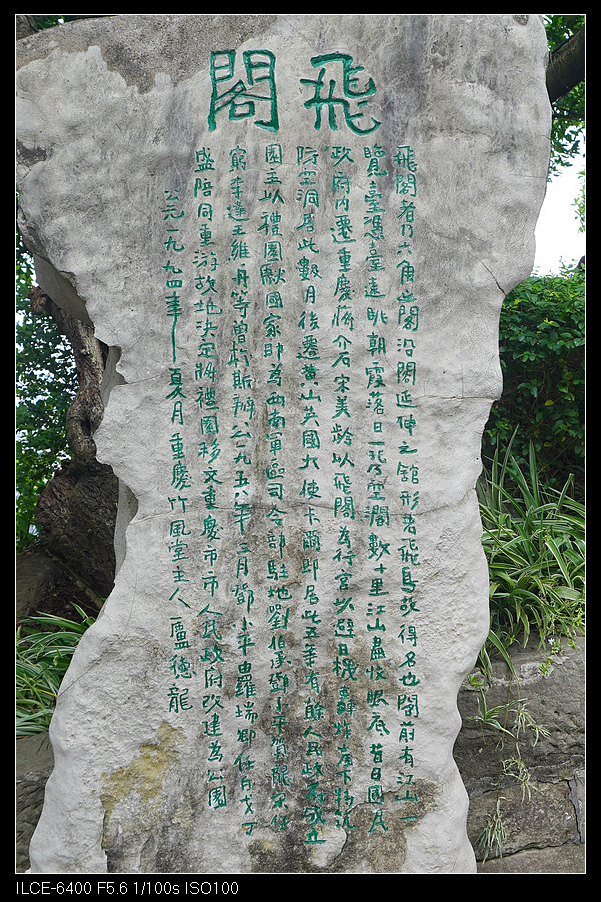 飛閣
飛閣者乃六角之閣沿閣延伸之舘形若飛鳥故得名也閣前有江山一
覽臺憑臺遠眺朝霞落日一覽空濶數十里江山盡收眼底昔日國民
政府內遷重慶蔣介石宋美齡以飛閣為行宮以避日機轟炸崖下構筑
防空洞居此數月後遷黄山英國大使卡爾即居此五年有餘人民政府成立
園主以禮園獻國家即為西南軍區司令部駐地劉伯承鄧小平賀龍宋任
窮李達王維舟等曾於斯辦公一九五八年三月鄧小平由羅瑞卿任白戈丁
盛陪同重游故地決定將禮園移交重慶市市人民政府改建為公園
公元一九九四年夏月重慶竹風堂主人盧德龍
ILCE-6400 F5.6 1/100s ISO100